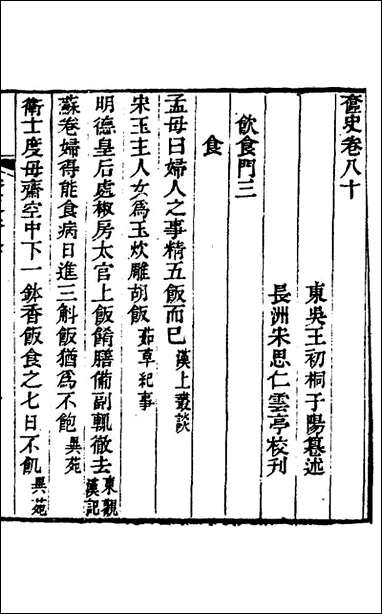 奩史卷八十
東吳王初桐于陽纂述
長洲宋思仁雲亭校刊
飲食門三
食
孟母曰婦人之事精五飯而已漢上叢談
宋玉主人女爲玉炊雕胡飯茹草紀事
明德皇后處椒房太官上飯餚膳備副輒徹去東觀漢記
蘇卷婦得能食病日進三斛飯猶爲不飽異苑
衛士度母齋空中下一鉢香飯食之七日不飢異苑